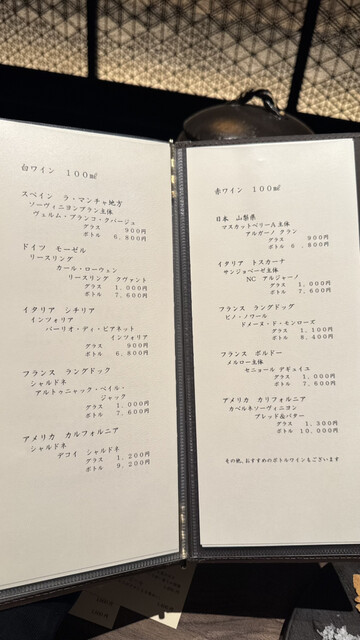 白ワイン 100㎖
スペイン ラ・マンチャ地方
ソーヴィニヨンブラン主体
ヴェルム・ブランコ・クパージュ
グラス 900円
ボトル 6,800円
ドイツ モーゼル
リースリング
カール・ローウェン
リースリング クヴァント
グラス 1,000円
ボトル 7,600円
イタリア シチリア
インツォリア
バーリオ・ディ・ピアネット
インツォリア
グラス 900円
ボトル 6,800円
フランス ラングドック
シャルドネ
アルトゥニャック・ペイル・
ジャック
グラス 1,000円
ボトル 7,600円
アメリカ カルフォルニア
シャルドネ
デコイ シャルドネ
グラス 1,200円
ボトル 9,200円
赤ワイン 100㎖
日本 山梨県
マスカットベリーA主体
アルガーノ クラン
グラス 900円
ボトル 6,800円
イタリア トスカーナ
サンジョベーゼ主体
NC アルジャーノ
グラス 1,000円
ボトル 7,600円
フランス ラングドッグ
ピノ・ノワール
ドメーヌ・ド・モンローズ
グラス 1,100円
ボトル 8,400円
フランス ボルドー
メルロー主体
セニョール デギュイエ
グラス 1,000円
ボトル 7,600円
アメリカ カリフォルニア
カベルネソーヴィニヨン
ブレッド&バター
グラス 1,300円
ボトル 10,000円
その他、おすすめのボトルワインもございます